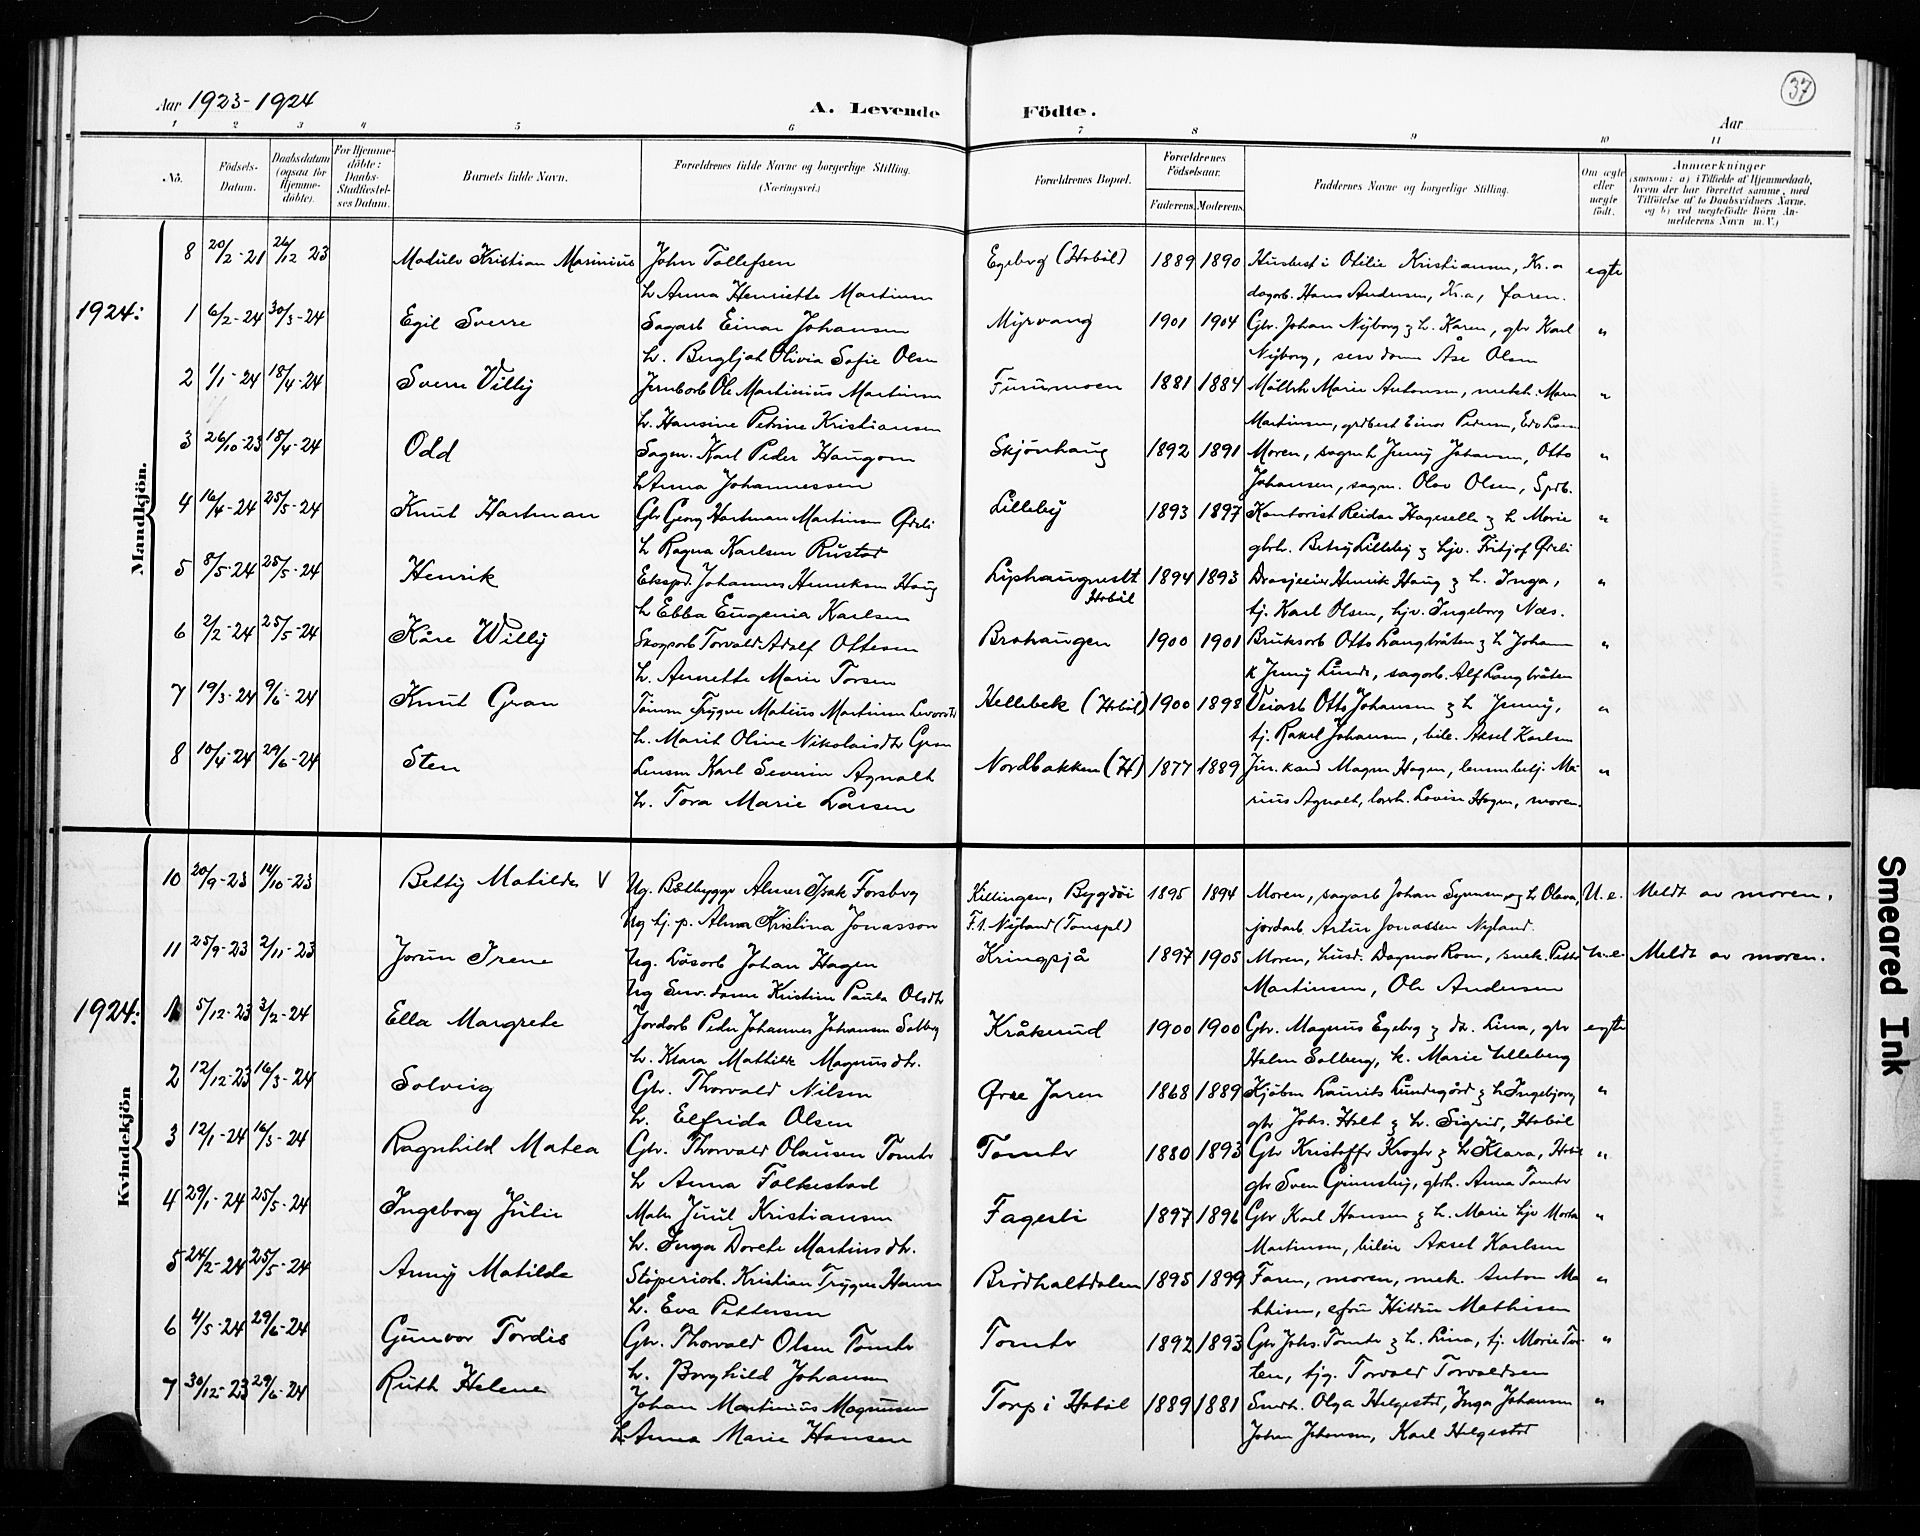 37
Aar 1923-1924
A. Levende Födte.
Aar
1 2 3 4 5 6 7 8 9 10 11
Nö.
Födsels-Datum.
Daabsdatum (ogsaa for Hjemmedöbte).
For Hjemmedöbte: Daabs-Stadfæstelses Datum.
Barnets fulde Navn.
Forældrenes fulde Navne og borgerlige Stilling. (Næringsvei.)
Forældrenes Bopæl.
Forældrenes Födselsaar.
Faderens. Moderens.
Faddernes Navne og borgerlige Stilling.
Om ægte eller uægte födt.
Anmærkninger
(saasom: a) i Tilfælde af Hjemmedaab, hvem der har forrettet samme, med Tilföielse af to Daabsvidners Navne. og b) ved uægtefödte Börn Anmelderens Navn m. V.)
Mandkjön.
8 20/2-21 26/12 23 Kristian Marinius John Tollefsen Egeberg (Hobøl) 1889 1890 Otilie Kristiansen, Kr.a egte
h. Anna Henriette Martinsen dagarb. Hans Andersen, Kr.a, faren.
1924: 1 6/2-24 30/3-24 Egil Sverre Sagarb Einar Johansen Myrvang 1901 1904 Gbr. Johan Nyborg & h. Karen, gbr Karl "
h. Bergljot Olivia Sofie Olsen Nyborg, serv dame Åse Olsen
2 1/1-24 18/4-24 Sverre Villy Jernbarb Ole Martinius Martinsen Furumoen 1881 1884 Marie Antonsen, "
h. Hansine Petrine Kristiansen Martinsen, Einar Pedersen,
3 26/10-23 18/4-24 Odd Sagm. Karl Peder Haugom Skjønhaug 1892 1891 Moren, sagm h Jenny Johansen, Otto "
h Anna Johannessen Johansen, sagm. Olav Olsen, Spdb.
4 16/4-24 25/5-24 Knut Hartman Gbr. Georg Hartman Martinsen Ødeli Lilleby 1893 1897 Kontorist Reidar Hageselle & h Marie "
h Ragna Karlsen Rustad gbrh. Betsy Lilleby & hjv. Fritjof Ødeli
5 8/5-24 25/5-24 Henrik Ekspd. Johannes Henriksen Haug Hobøl 1894 1893 Henrik Haug & h. Inga, "
h Ebba Eugenia Karlsen tj. Karl Olsen, hjv. Ingeborg Næs.
6 2/2-24 25/5-24 Kåre Willy Skogsarb Torvald Adolf Ottesen Brohaugen 1900 1901 Bruksarb Otto Langbråten & h Johan "
h. Annette Marie Torsen k Jenny Lunde, sagarb. Alf Langbråten
7 19/3-24 9/6-24 Knut Gran Tømm Trygve Matius Martinsen Hellebek (Hobøl) 1900 1898 Veiarb Otto Johansen & h Jenny, "
h. Marit Oline Nikolaisdtr Gran tj. Rakel Johansen, bile. Aksel Karlsen
8 10/4-24 29/6-24 Sten Lensm Karl Severin Agnalt Nordbakken (H) 1877 1889 Jur. kand Magne Hagen, lensm betj. Ma- "
h. Tora Marie Larsen rius Agnalt, Lovise Hagen, moren.
Kvindekjön
10 20/9-23 14/10-23 Betty Matilde V Ug. Båtbygger Almer Isak Forsberg Killingen, Bygdøi 1895 1894 Moren, sagarb Johan Synnes og h Olava, U. e. Meldt av moren.
Ug tj. p. Alma Kristina Jonasson F.t. Nyland (Tomspl) jordarb. Artur Jonassen Nyland.
11 25/9-23 2/11-23 Jorun Irene Ug. Løsarb Johan Hagen Kringsjå 1897 1905 Moren, husd. Dagmar Rom, snek. Petter U. e. Meldt av moren.
Ug Serv. dame Kristine Paula Olsdtr Martinsen, Ole Andersen
1924: 1 5/12-23 3/2-24 Ella Margrete Jordarb Peder Johannes Johansen Solberg Kråkerud 1900 1900 Gbr. Magnus Egeberg & dtr. Lina, gbr egte
h. Klara Mathilde Magnusdtr. Halm Solberg, k. Marie Lilleberg
2 12/12-23 16/3-24 Solveig Gbr. Thorvald Nilsen Øvre Jaren 1868 1889 Kjøbm Laurits Lundegård & h Ingebjorg "
h. Elfrida Olsen gbr Johs. Holt & h. Sigrid, Hobøl
3 12/1-24 16/3-24 Ragnhild Matea Gbr. Thorvald Olausen Tomter Tomter 1880 1893 Gbr Kristoffer Krogh & h Klara, Hobøl "
h Anna Folkestad gbr Sven Grimsby, gbrh. Anna Tomter
4 29/1-24 25/5-24 Ingeborg Julie Maler Juul Kristiansen Fagerli 1897 1896 Gbr Karl Hansen & h. Marie hjv Marta "
h. Inga Dorete Martinsdtr. Martinsen, bileier Aksel Karlsen
5 24/2-24 25/5-24 Anny Matilde Støperiarb. Kristian Trygve Hansen Brødholtdalen 1895 1899 Faren, moren, mek. Anton Ma- "
h. Eva Pettersen thisen, Mathisen
6 4/5-24 29/6-24 Gunvor Tordis Gbr. Thorvald Olsen Tomter Tomter 1892 1893 Gbr Johs. Tomter & h. Lina, tj. Marie Tor- "
h. Borghild Johansen ten, tjg. Torvald Torvaldsen
7 30/12-23 29/6-24 Ruth Helene Johan Martinius Magnussen Torp i Hobøl 1889 1881 Smdh. Olga Helgestad, Inga Johansen "
h. Anna Marie Hansen Johan Johansen, Karl Helgestad
Smeared Ink